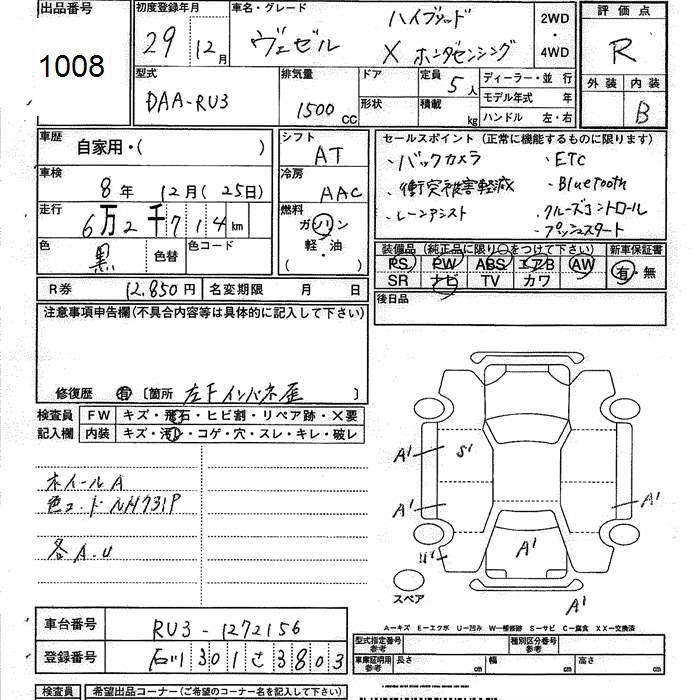 出品番号
1008
初度登録年月
29 12月
車名・グレード
ハイブリッド
ヴェゼル X ホンダセンシング
2WD
・
4WD
評価点
R
外装 内装
B
型式
DAA-RU3
排気量
1500 cc
ドア
形状
定員 5 人
積載 kg
ディーラー・並 行
モデル年式 年
ハンドル 左・右
車歴
自家用・( )
車検
8年 12月(25日)
走行
6万2千714km
色
黒
色替
色コード
シフト
AT
冷房
AAC
燃料
ガソリン
軽・油
( )
セールスポイント(正常に機能するものに限ります)
・バックカメラ ・ETC
・衝突被害軽減 ・Bluetooth
・レーンアシスト ・クルーズコントロール
・プッシュスタート
装備品(純正品に限り○をつけて下さい)
PS PW ABS エアB AW
SR ナビ TV カワ
新車保証書
有・無
R券 12.850円 名変期限 月 日
後日品
注意事項申告欄(不具合内容等は具体的に記入して下さい)
修復歴 有 〔箇所 左Fインパネ歪 〕
検査員
記入欄
FW キズ・飛石・ヒビ割・リペア跡・X要
内装 キズ・汚れ・コゲ・穴・スレ・キレ・破レ
ホイールA
色コードNH731P
各A.U
A' S'
A' A'
U' A'
A'
スペア
A-キズ E-エクボ U-凹み W-補修跡 S-サビ C-腐食 XX-交換済
車台番号 RU3-1272156
登録番号 石川301さ3803
型式指定番号
参考
種別区分番号
参考
車庫証明用
参考
長さ cm 幅 cm 高さ cm
検査員 希望出品コーナー(ご希望のコーナー名を記入下さい)